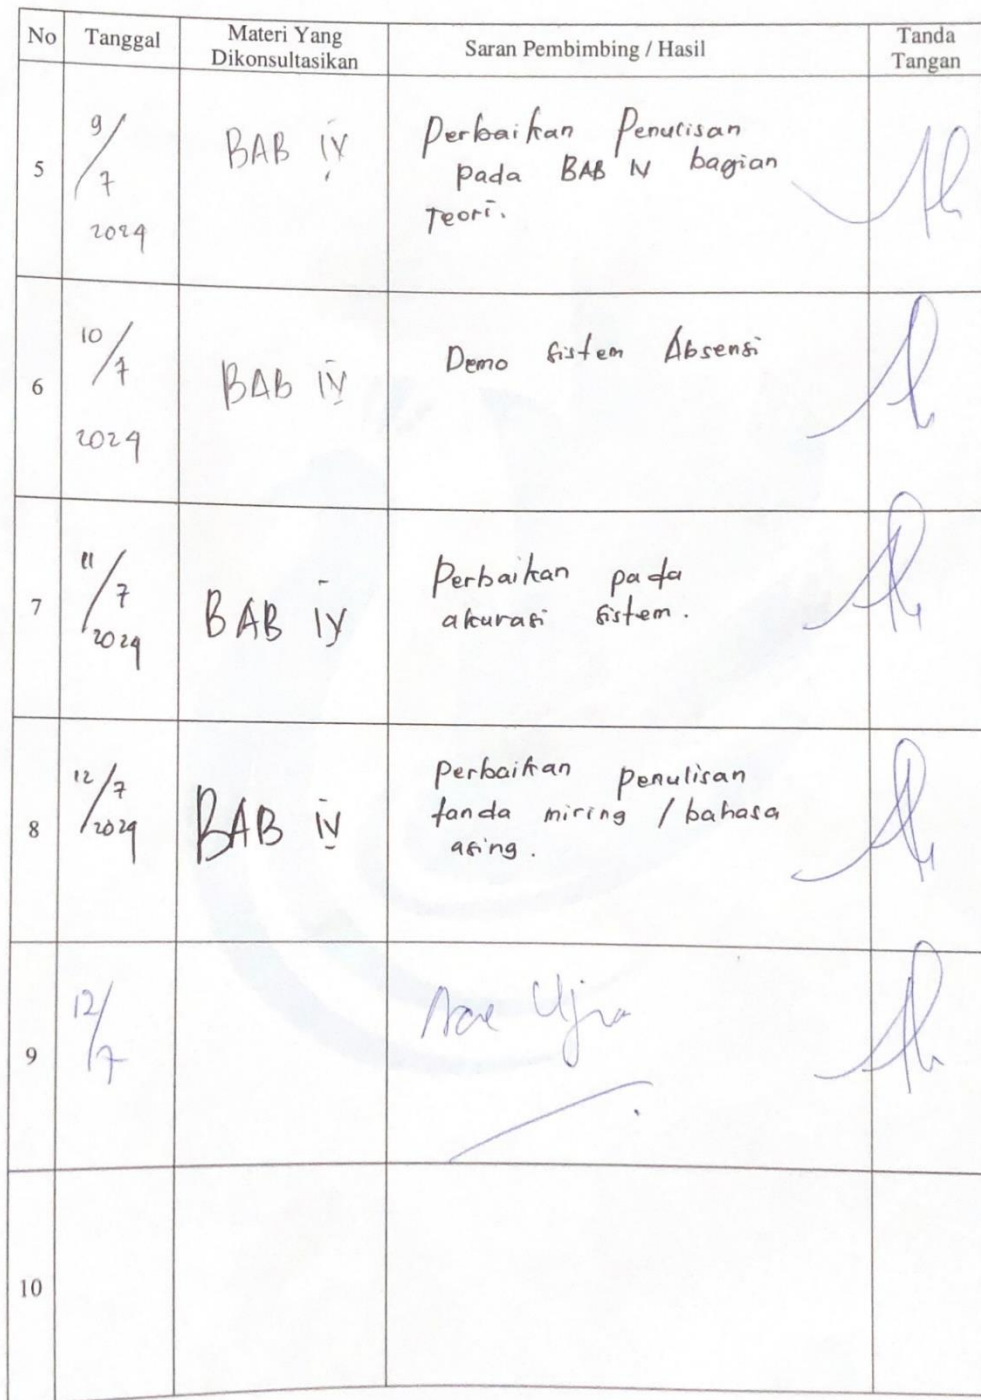 No Tanggal Materi Yang Dikonsultasikan Saran Pembimbing / Hasil Tanda Tangan
5 9/7 2024 BAB IV Perbaikan Penulisan
pada BAB IV bagian
Teori.
6 10/7 2024 BAB IV Demo sistem Absensi
7 11/7 2024 BAB IV Perbaikan pada
akurasi sistem.
8 12/7 2024 BAB IV Perbaikan penulisan
tanda miring / bahasa
asing.
9 12/7 Acc Ujian
10